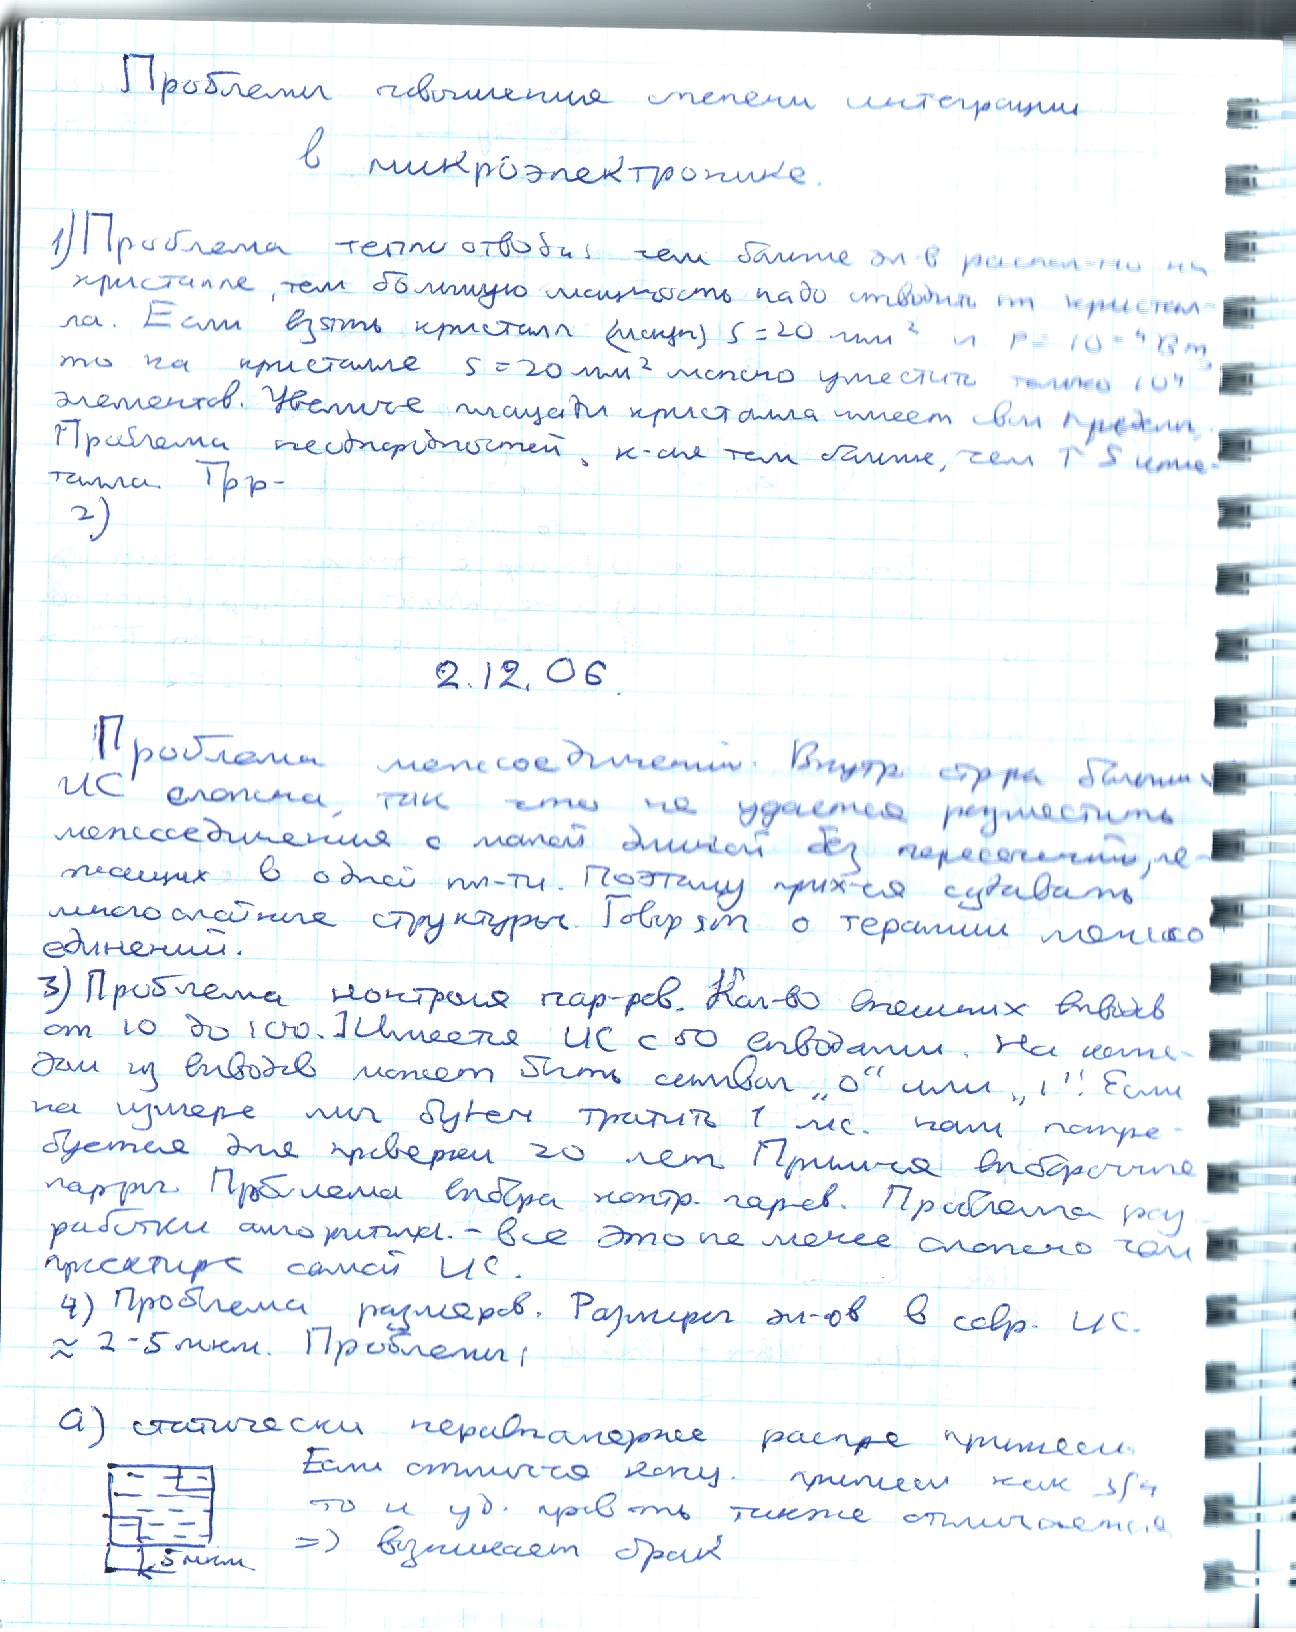 Проблемы повышения степени интеграции
в микроэлектронике.
1) Проблема теплоотвода: чем больше эл-в распол-но на
кристалле, тем большую мощность надо отводить от кристал-
ла. Если взять кристалл S=20 мм² и P=10⁻⁴Вт,
то на кристалле S=20мм² можно уместить только 10⁴
элементов. Увеличе площади кристалла имеет свои пределы.
Проблема неоднородностей, к-ые тем больше, чем ↑ S
талла.
2)
2.12.06.
Проблема межсоединений. Внутр стр-ра больших
ИС сложна, так что не удается разместить
межсоединения с малой длиной без пересечений, ле-
жащих в одной пл-ти. Поэтому прих-ся создавать
многослойные структуры. Говорят о терапии межсо
единений.
3) Проблема контроля пар-ров. Кол-во внешних выводов
от 10 до 100. Имеется ИС с 50 выводами. На каж-
дом из выводов может быть символ „0“ или „1“. Если
на измере мы будем тратить 1 мс. нам потре-
буется для проверки 20 лет. выборочные
Проблема выбора контр. пар-ов. Проблема раз
работки алгоритма. - все это не менее сложно чем
проектир самой ИС.
4) Проблема размеров. Размеры эл-ов в совр. ИС.
≈ 2-5 мкм. Проблемы:
а) статически неравномерное распр-е примеси.
Если отличия конц. примеси как 3/4
то и уд. пров-ть также отличается
=> возникает брак
5 мкм